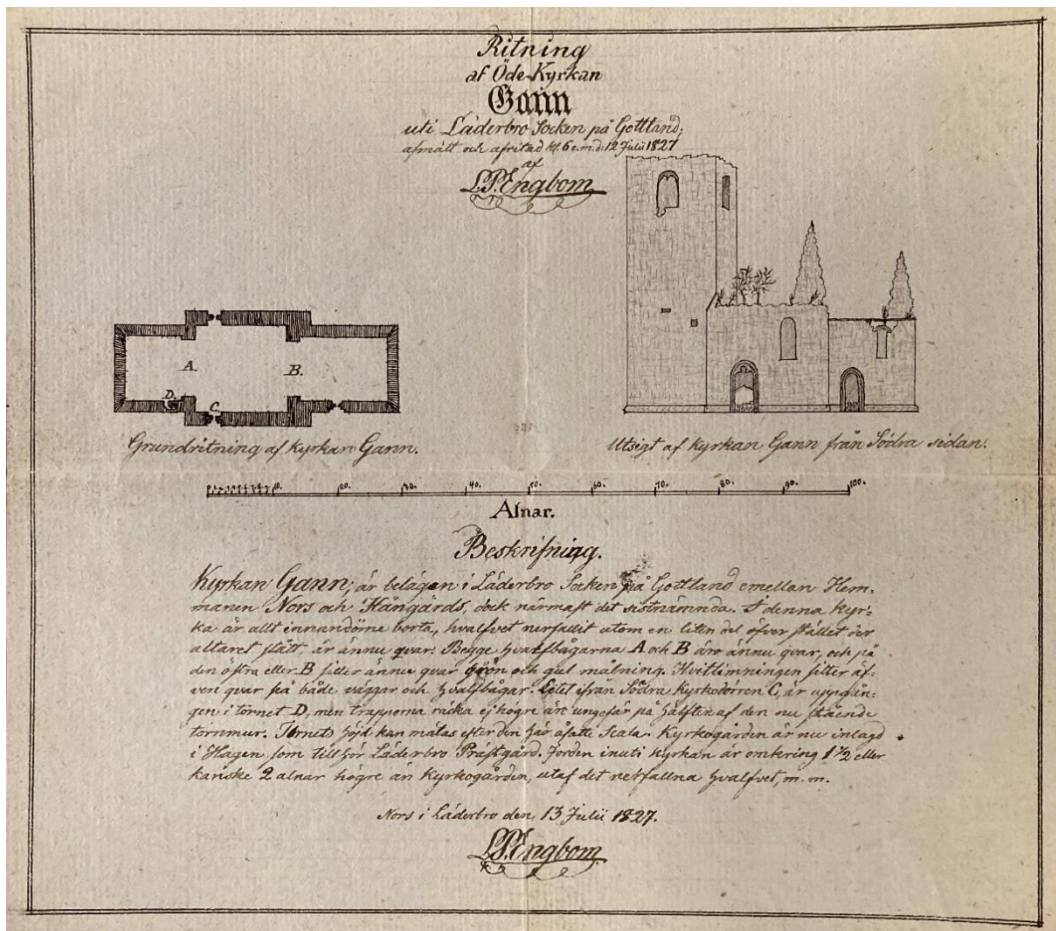 Ritning
af Öde Kyrkan
Gann
uti Läderbro Socken på Gottland;
afmätt och afritad kl. 6 e.m. d. 12 Julii 1827
af
L.P. Engbom
A.
B.
D.
C.
Grundritning af kyrkan Gann.
Utsigt af kyrkan Gann från Södra sidan.
10. 20. 30. 40. 50. 60. 70. 80. 90. 100.
Alnar.
Beskrifning.
Kyrkan Gann; är belägen i Läderbro Socken på Gottland emellan Hem-
manen Nors och Hångårds, dock närmast det sistnämnda. I denna kyr-
ka är allt innandöme borta, hvalfvet nerfallit utom en liten del öfver stället der
altaret stått, är ännu qvar. Begge hvalfbågarna A och B äro ännu qvar, och på
den östra eller B sitter ännu qvar grön och gul målning. Hvitlimningen sitter äf-
ven qvar på både väggar och hvalfbågar. Litet ifrån Södra Kyrkodörren C, är uppgån-
gen i tornet D, men trapporna räcka ej högre än ungefär på hälften af den nu stående
tornmur. Tornets höjd kan mätas efter den här afsatte Scala. Kyrkogården är nu inlagd
i Hagen, som tillhör Läderbro Prästgård. Jorden inuti kyrkan är omkring 1 1/2 eller
kanske 2 alnar högre än kyrkogården, utaf det nerfallna hvalfvet, m.m.
Nors i Läderbro den 13 Julii 1827.
L.P. Engbom